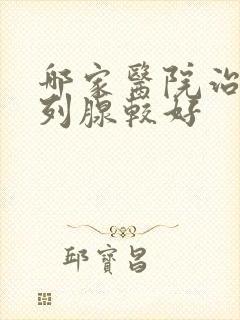 哪家醫院治
列腺較好
邱寶昌